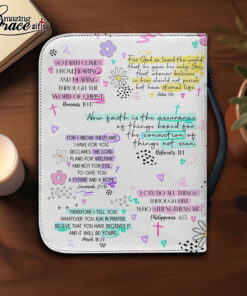 Amazing
Grace gifts
SO FAITH COMES
FROM HEARING
AND HEARING
THROUGH THE
WORD OF CHRIST
Romans 10:17
For God so loved the world
that he gave his only Son
that whoever believes
in him should not perish
but have eternal life.
John 3:16
Now faith is the assurance
of things hoped for,
the conviction of
things not seen.
Hebrews 11:1
FOR I KNOW THE PLANS
I HAVE FOR YOU
DECLARES THE LORD
PLANS FOR WELFARE
AND NOT FOR EVIL
TO GIVE YOU
A FUTURE AND A HOPE
Jeremiah 29:11
I CAN DO ALL THINGS
THROUGH HIM
WHO STRENGTHENS ME
Philippians 4:13
THEREFORE I TELL YOU
WHATEVER YOU ASK IN PRAYER,
BELIEVE THAT YOU HAVE RECEIVED IT,
AND IT WILL BE YOURS
Mark 11:24